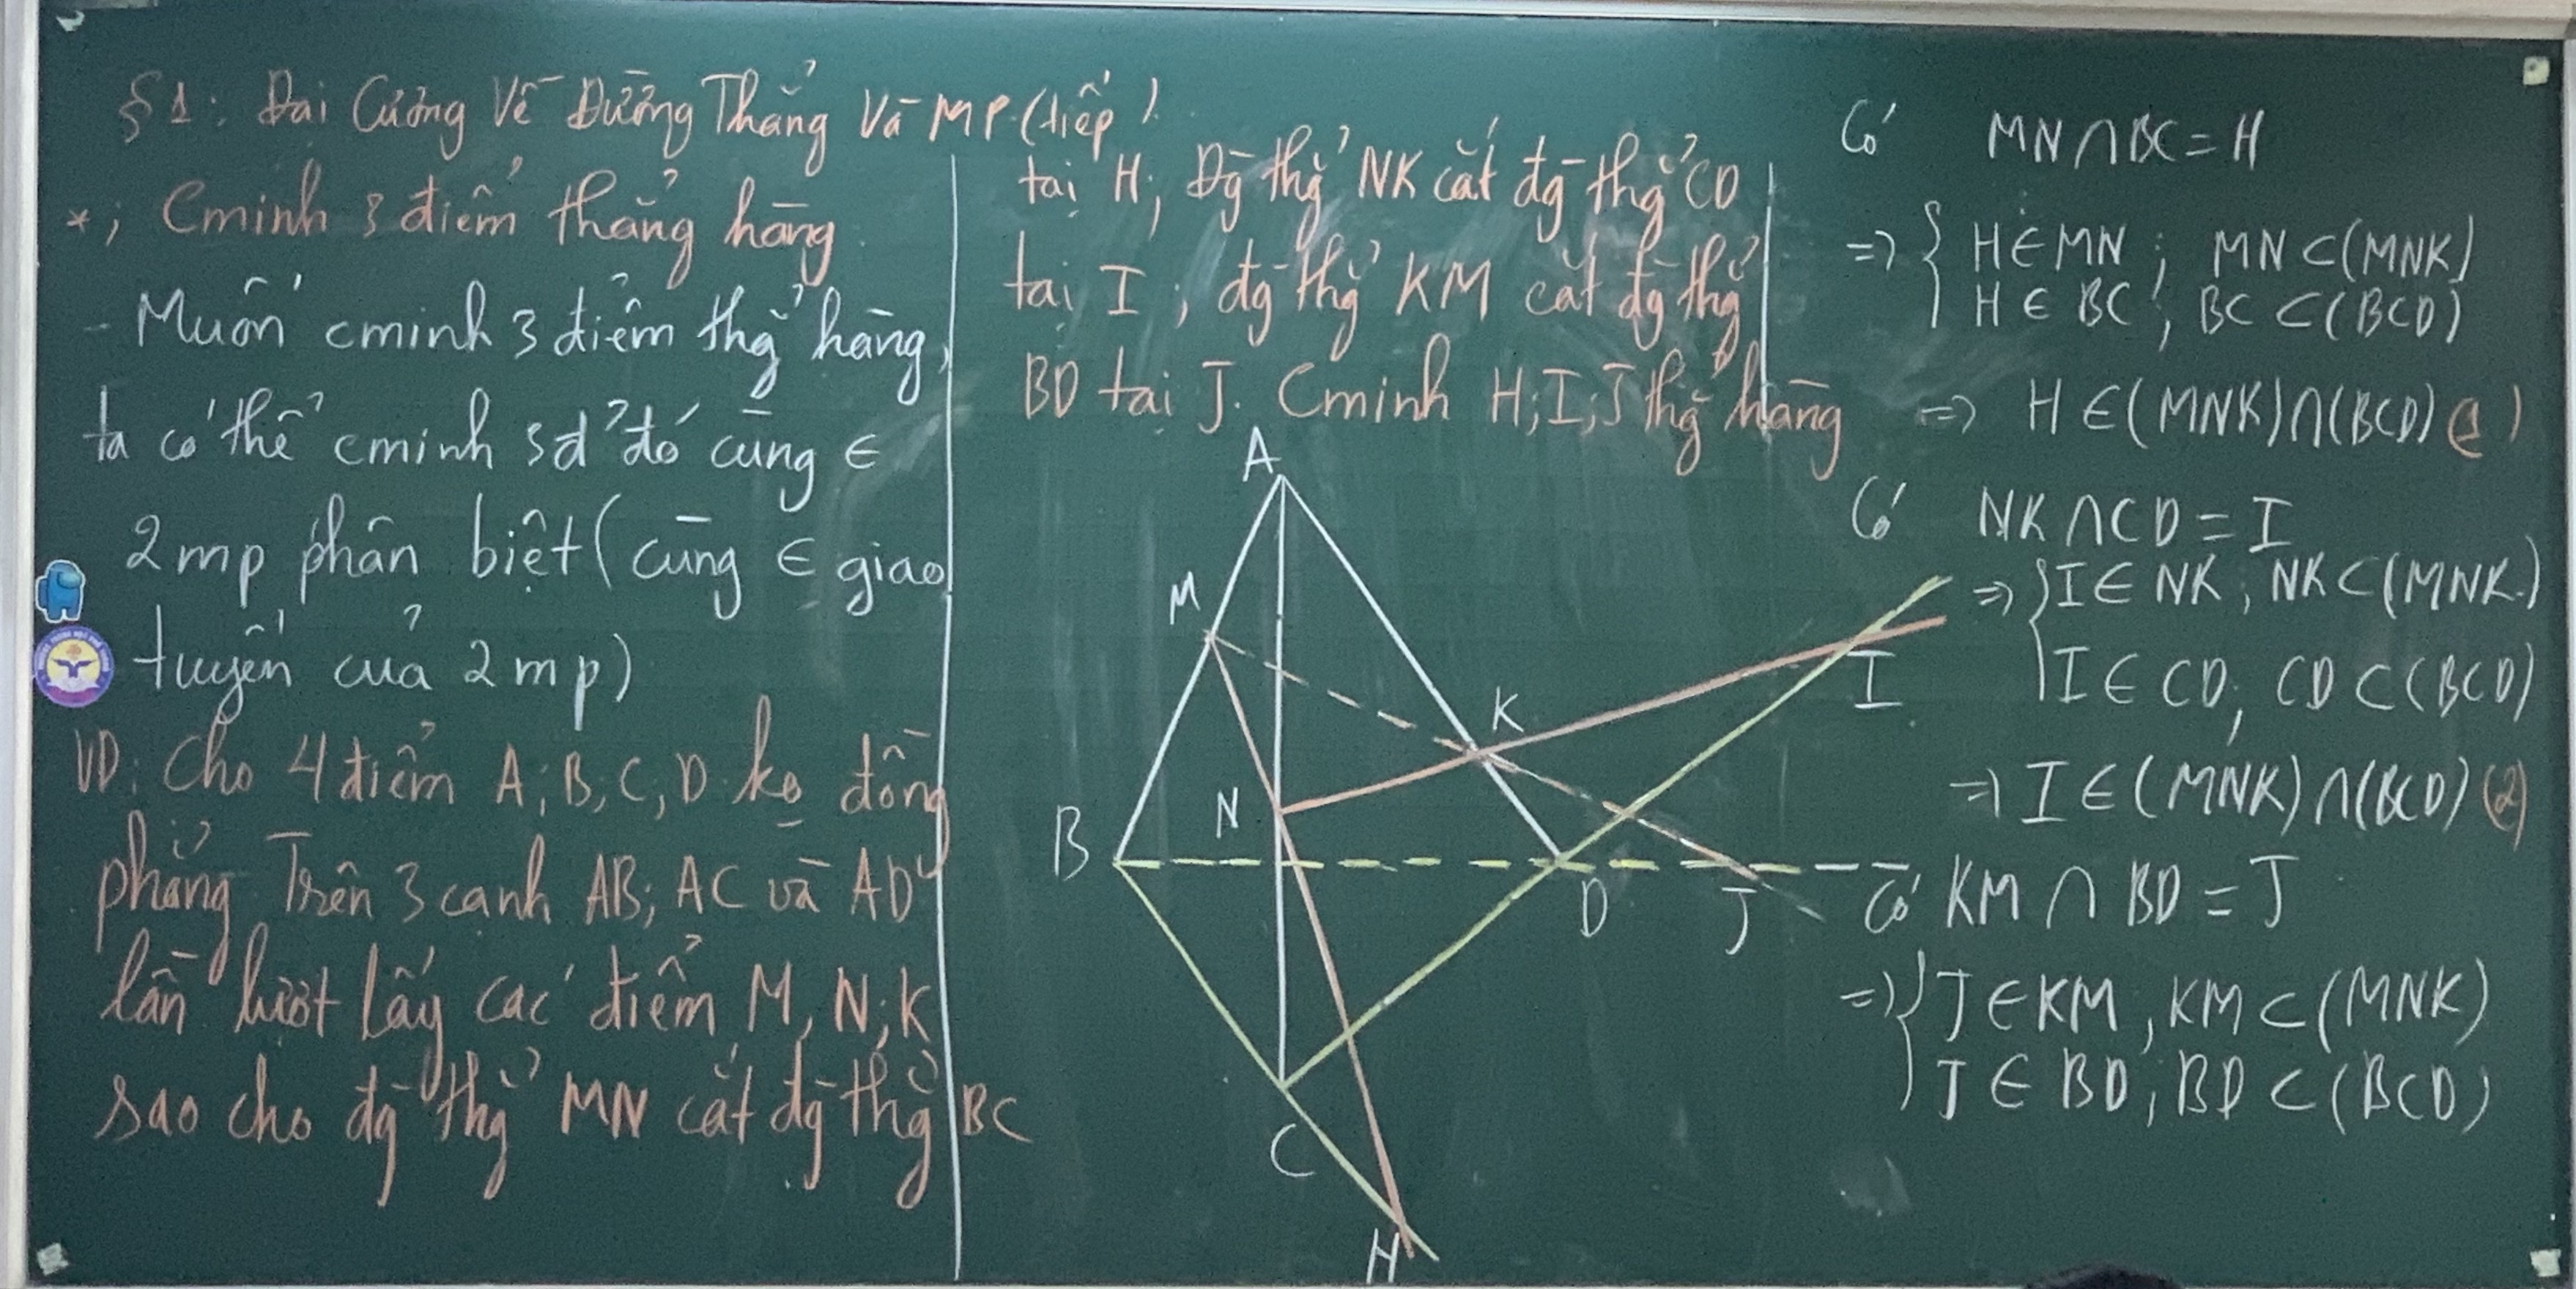 §1: Đại Cương Về Đường Thẳng Và MP (tiếp)
*, Cminh 3 điểm thẳng hàng
- Muốn cminh 3 điểm thg̉ hàng,
ta có thể cminh 3đ' đó cùng ∈
2 mp phân biệt (cùng ∈ giao
tuyến của 2 mp)
VD: Cho 4 điểm A; B; C, D ko đồng
phẳng Trên 3 cạnh AB; AC và AD
lần lượt lấy các điểm M, N; K
sao cho đg̀ thg̉ MN cắt đg̀ thg̉ BC
tại H; Đg̀ thg̉ NK cắt đg̀ thg̉ CD
tại I; đg̀ thg̉ KM cắt đg̀ thg̉
BD tại J. Cminh H; I; J thg̉ hàng
A
M
K
I
N
B
D
J
C
H
Có MN ∩ BC = H
=> { H ∈ MN ; MN ⊂ (MNK)
H ∈ BC ; BC ⊂ (BCD)
=> H ∈ (MNK) ∩ (BCD) (1)
Có NK ∩ CD = I
=> { I ∈ NK ; NK ⊂ (MNK)
I ∈ CD, CD ⊂ (BCD)
=> I ∈ (MNK) ∩ (BCD) (2)
Có KM ∩ BD = J
=> { J ∈ KM, KM ⊂ (MNK)
J ∈ BD; BD ⊂ (BCD)